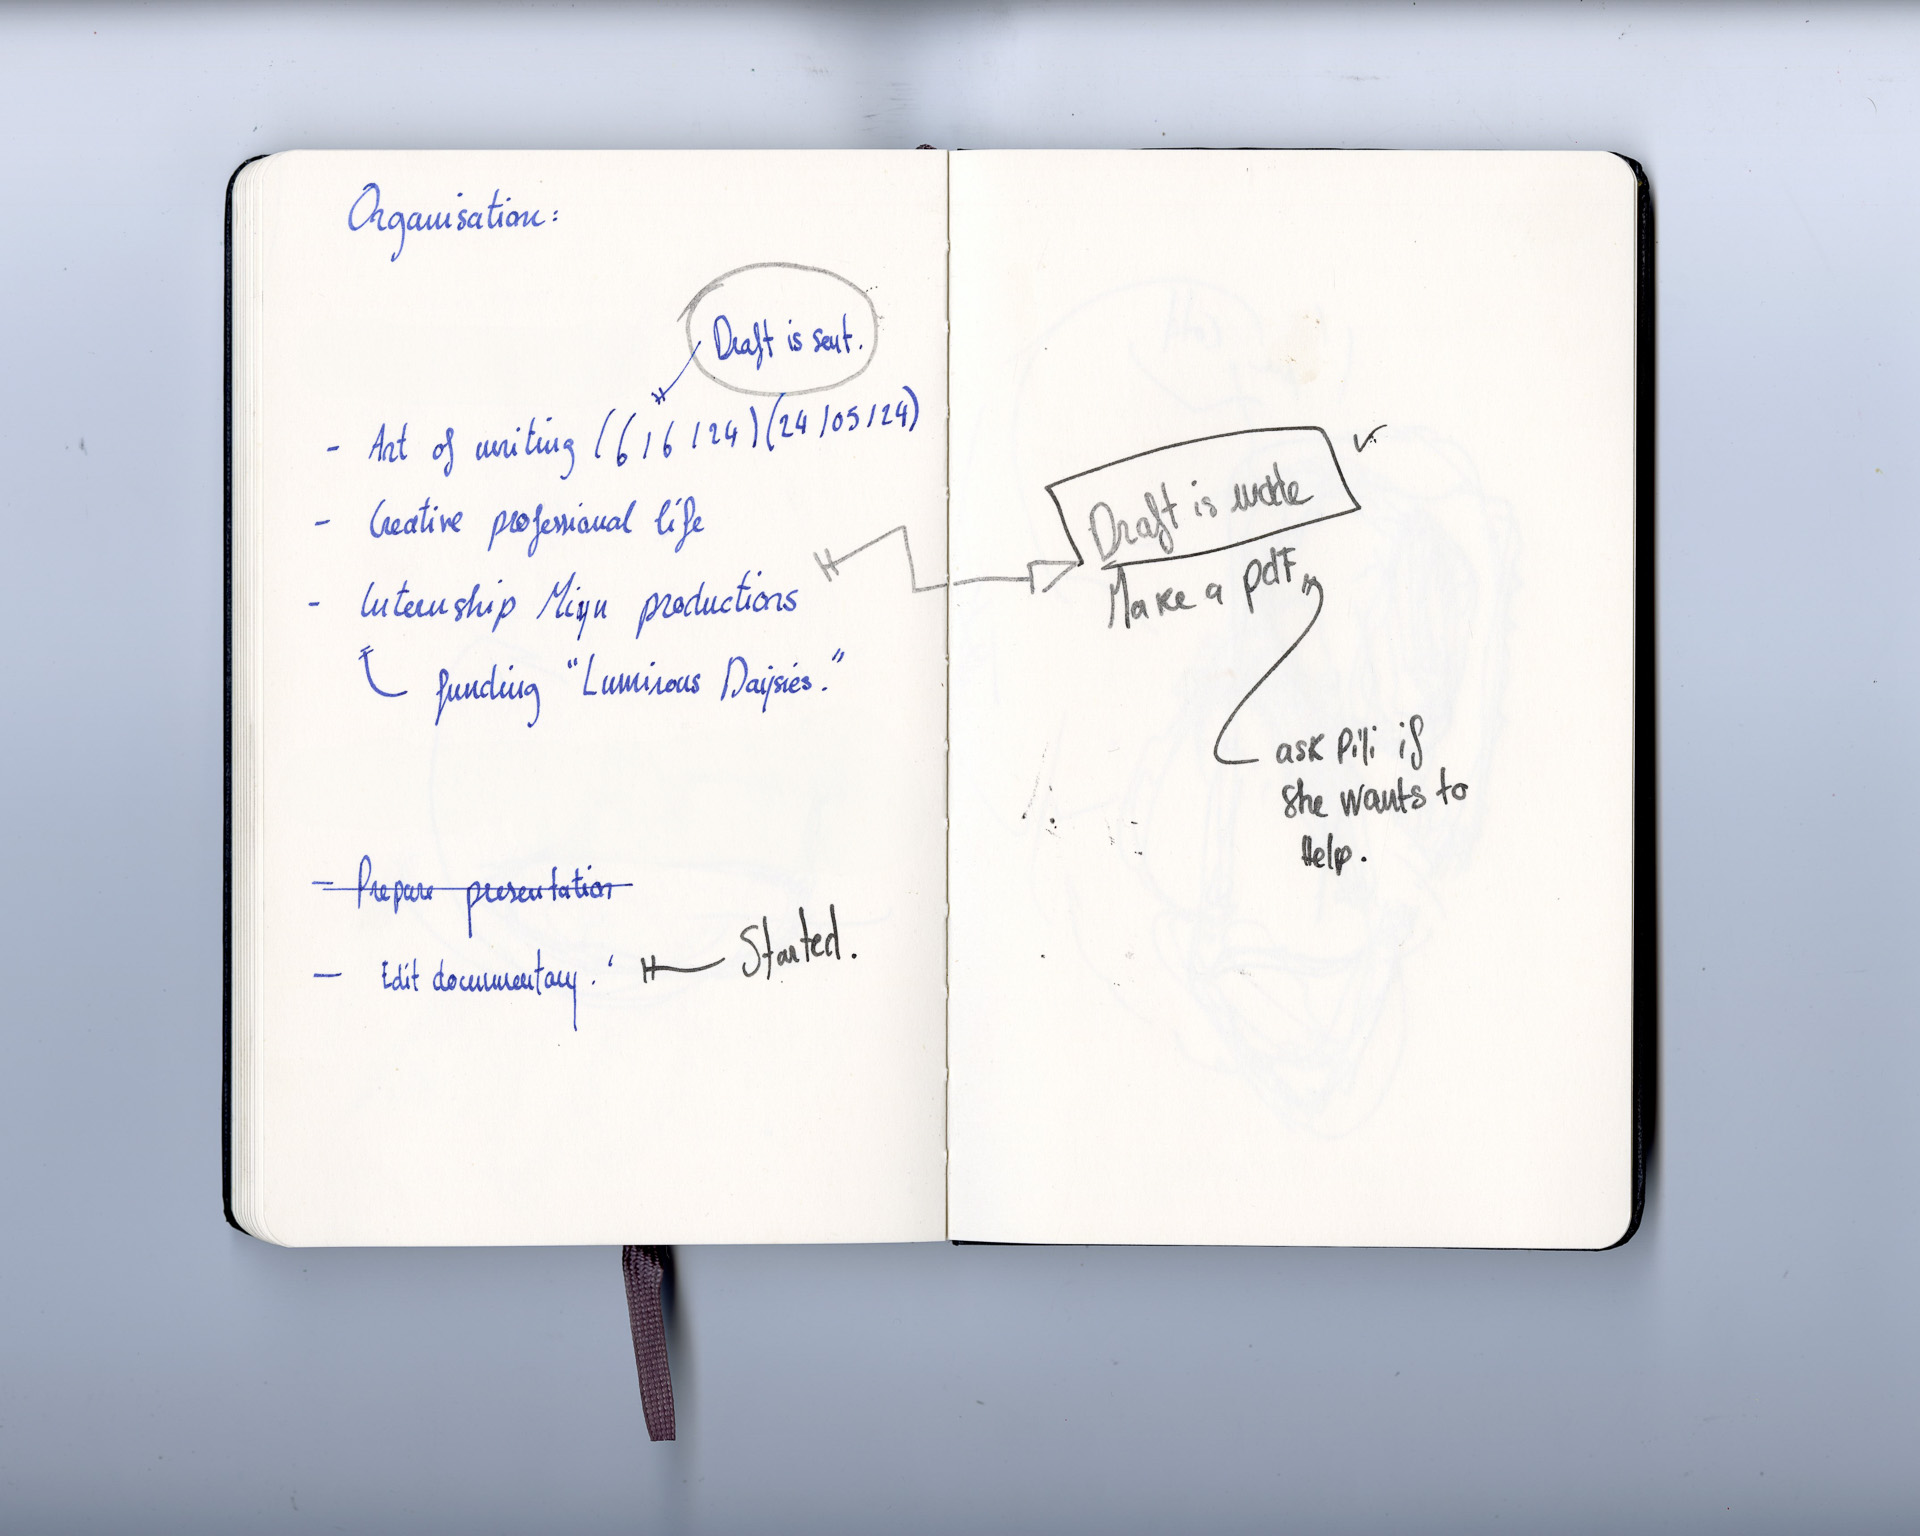 Organisation:
Draft is sent.
- Art of writing (6/6/24) (24/05/24)
- Creative professional life
- Internship Miyu productions
funding "Luminous Daysies."
- Prepare presentation
- Edit documentary.
Started.
Draft is wrote
Make a pdf
ask Pili if
she wants to
Help.